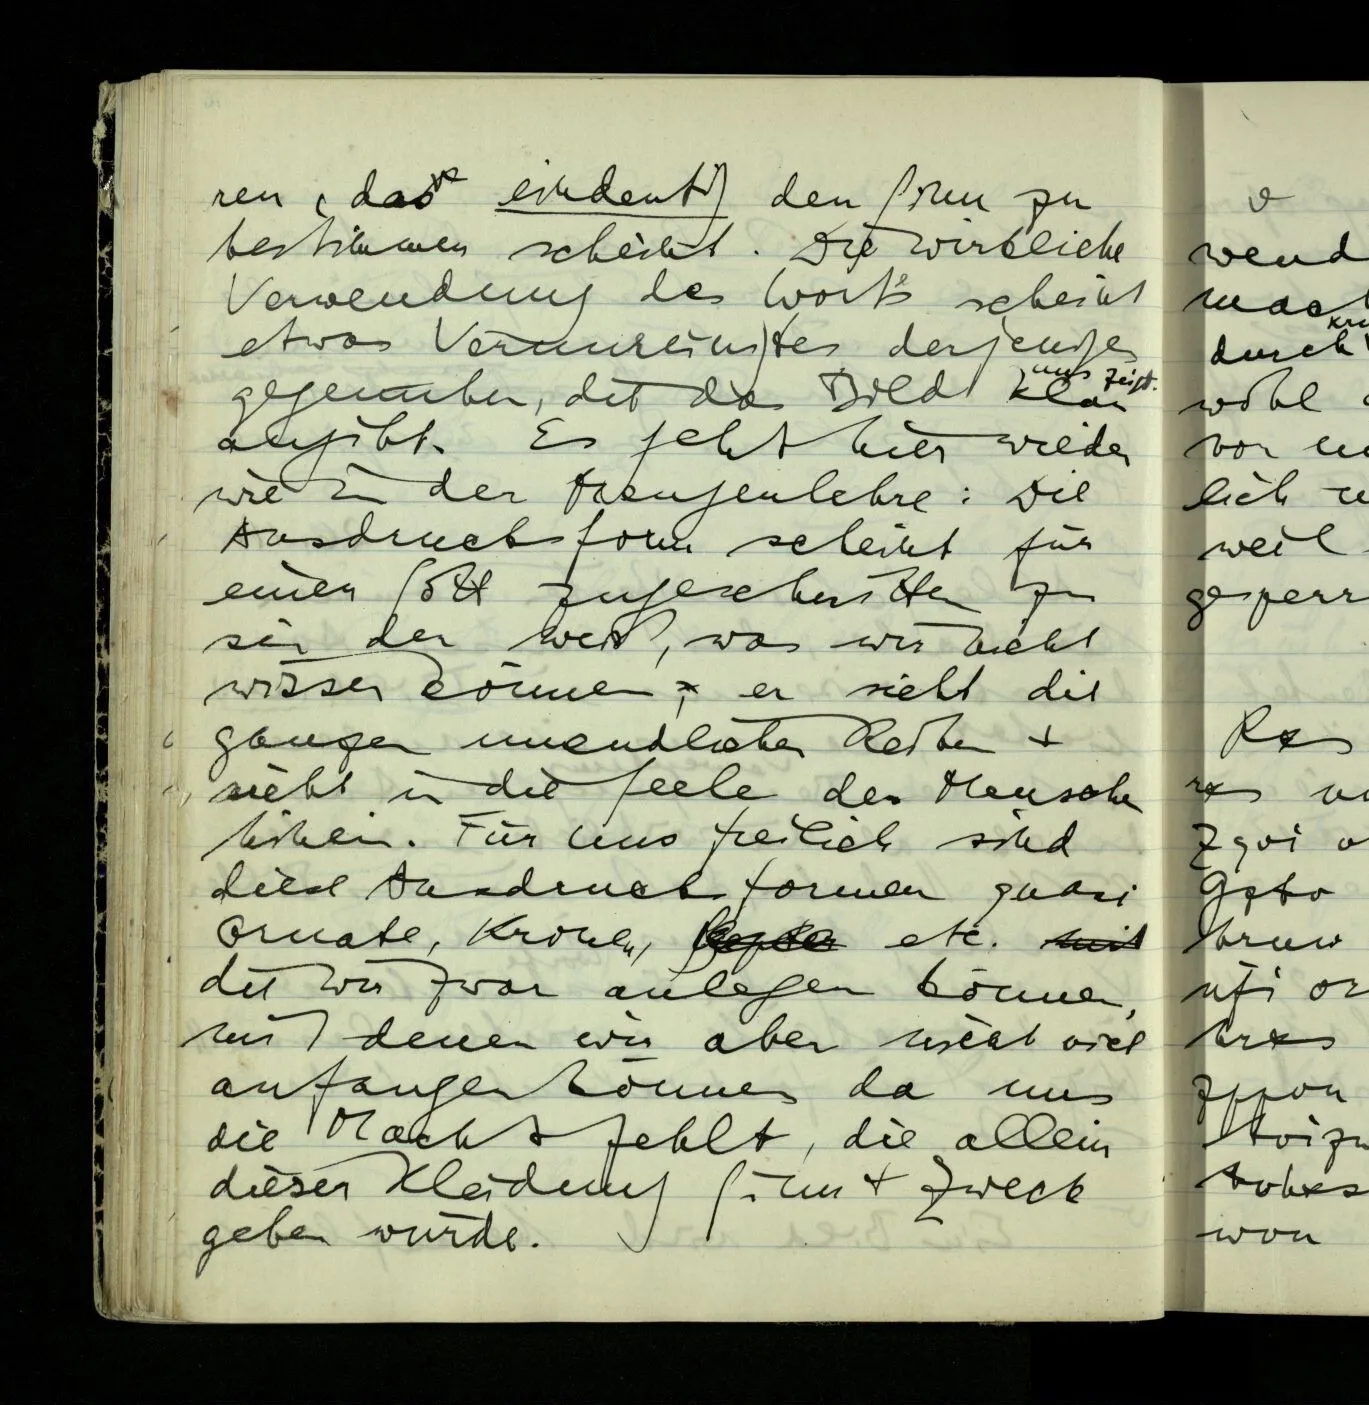 ren, das eindeutig den Sinn zu
bestimmen scheint. Die wirkliche
Verwendung des Worts scheint
etwas Verunreinigtes derjenigen
gegenüber, die das Bild klar uns zeigt.
angibt. Es geht hier wieder
wie in der Mengenlehre: Die
Ausdrucksform scheint für
einen Gott zugeschnitten zu
sein der weiß, was wir nicht
wissen können; er sieht die
ganzen unendlichen Reihen +
sieht in die Seele des Menschen
hinein. Für uns freilich sind
diese Ausdrucksformen quasi
Ornate, Kronen, Szepter etc. mit
die wir zwar anlegen können,
mit denen wir aber nicht viel
anfangen können da uns
die Macht fehlt, die allein
dieser Kleidung Sinn + Zweck
geben würde.
wend
mach
durch
wohl
vor un
lich
weil
gesperr
Rxs
rxs
Zgvi
hrxs
won